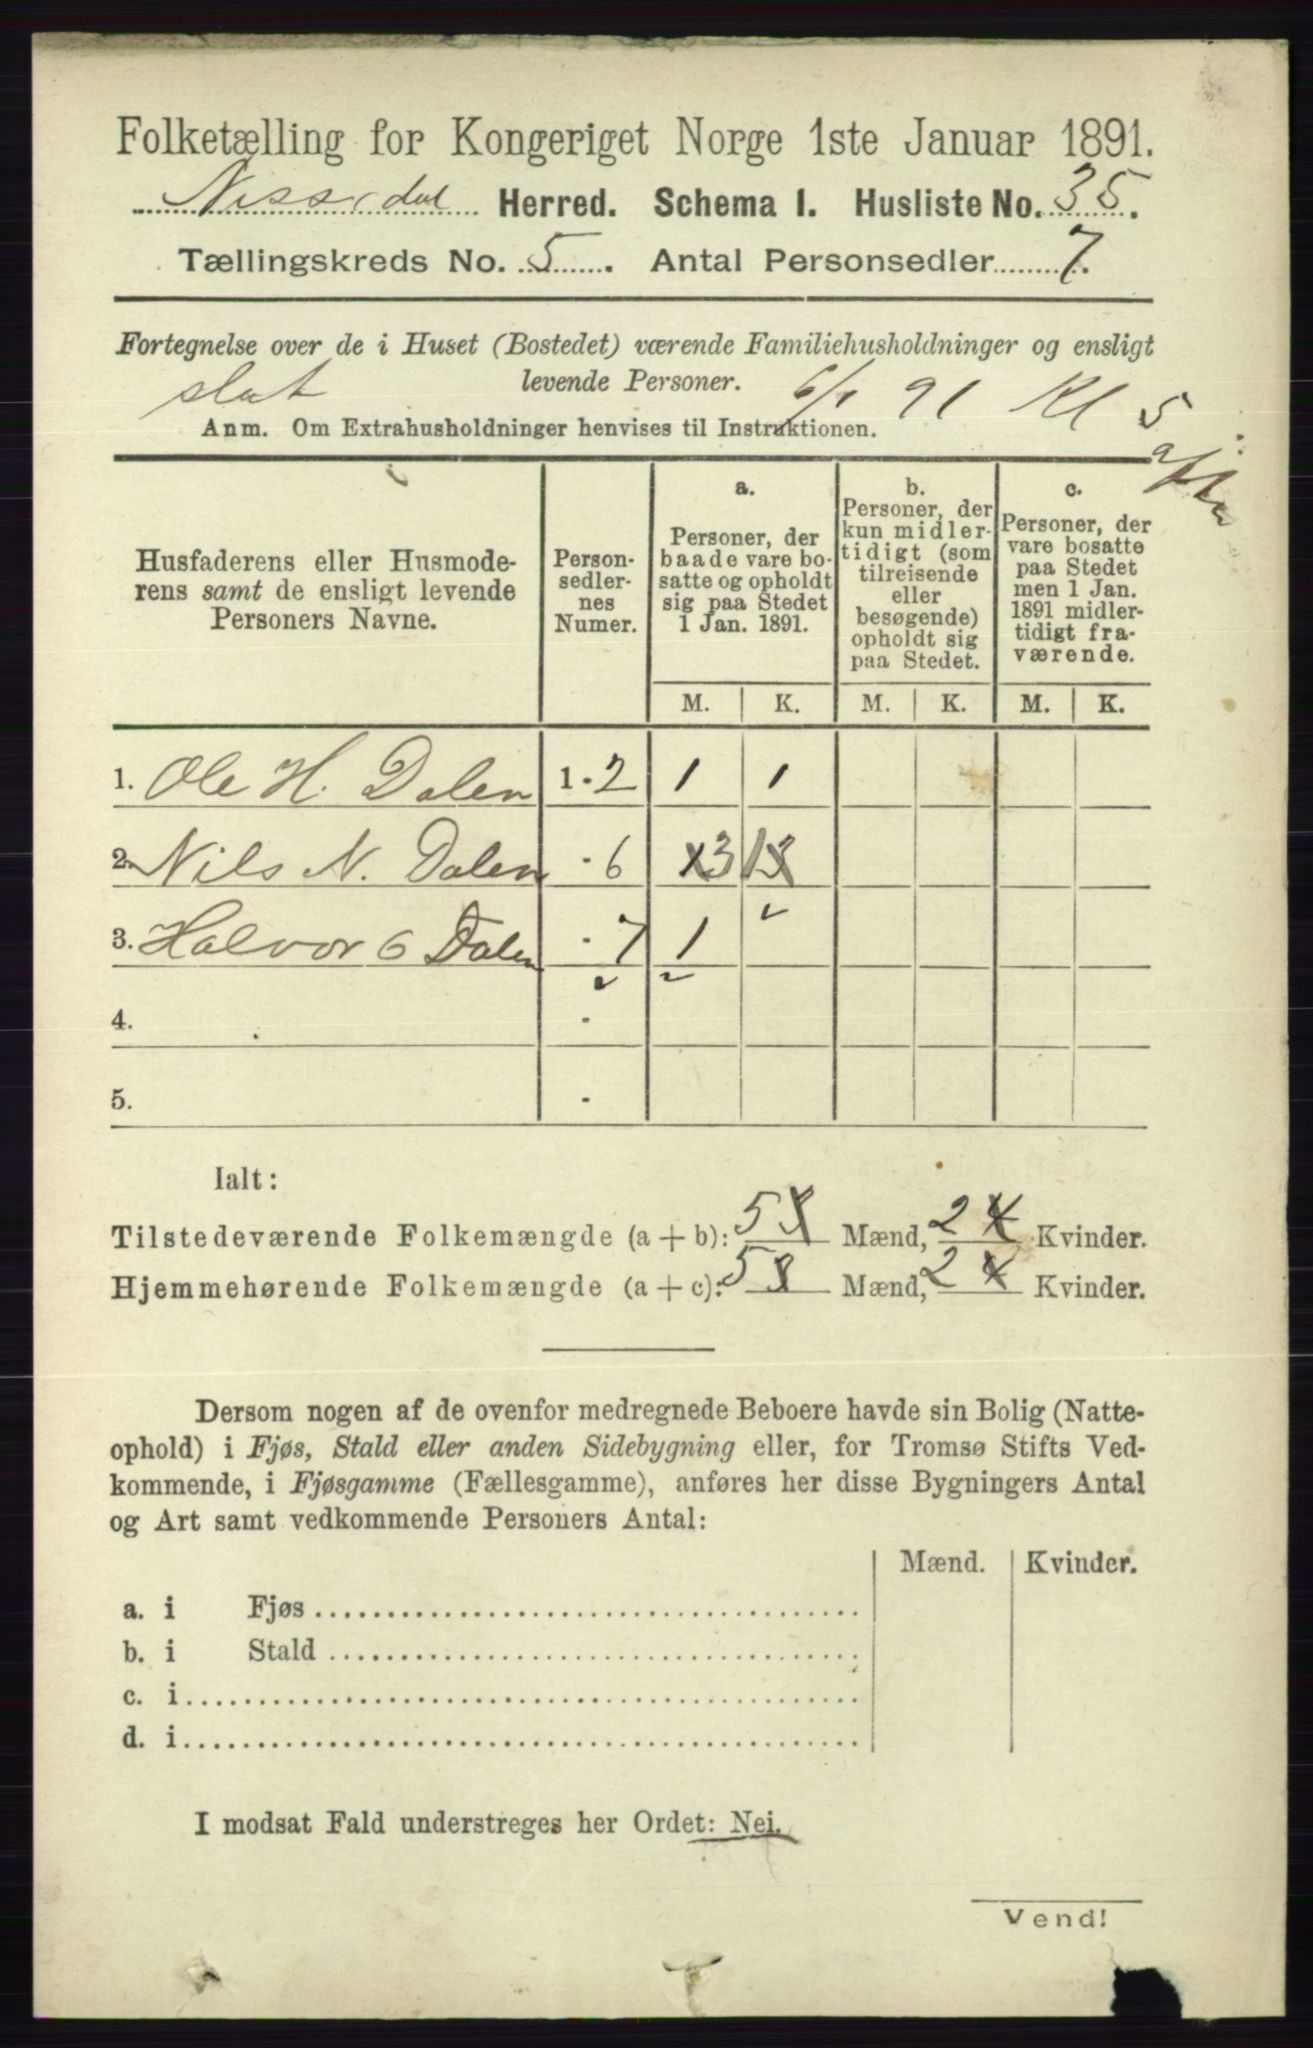 Folketælling for Kongeriget Norge 1ste Januar 1891.
Nissedal Herred. Schema I. Husliste No. 35.
Tællingskreds No. 5. Antal Personsedler 7.
Fortegnelse over de i Huset (Bostedet) værende Familiehusholdninger og ensligt
levende Personer.
slut 6/1 91 Kl 5
Anm. Om Extrahusholdninger henvises til Instruktionen.
Husfaderens eller Husmode-
rens samt de ensligt levende
Personers Navne.
Person-
sedler-
nes
Numer.
a.
Personer, der
baade vare bo-
satte og opholdt
sig paa Stedet
1 Jan. 1891.
b.
Personer, der
kun midler-
tidigt (som
tilreisende
eller
besøgende)
opholdt sig
paa Stedet.
c.
Personer, der
vare bosatte
paa Stedet
men 1 Jan.
1891 midler-
tidigt fra-
værende.
M. K. M. K. M. K.
1. Ole H. Dalen 1 - 2 1 1
2. Nils N. Dalen - 6 3 1
3. Halvor G Dalen - 7 1
4. -
5. -
Ialt:
Tilstedeværende Folkemængde (a + b): 5 Mænd, 2 4 Kvinder.
Hjemmehørende Folkemængde (a + c): 5 Mænd, 2 4 Kvinder.
Dersom nogen af de ovenfor medregnede Beboere havde sin Bolig (Natte-
ophold) i Fjøs, Stald eller anden Sidebygning eller, for Tromsø Stifts Ved-
kommende, i Fjøsgamme (Fællesgamme), anføres her disse Bygningers Antal
og Art samt vedkommende Personers Antal:
Mænd. Kvinder.
a. i Fjøs
b. i Stald
c. i
d. i
I modsat Fald understreges her Ordet: Nei.
Vend!